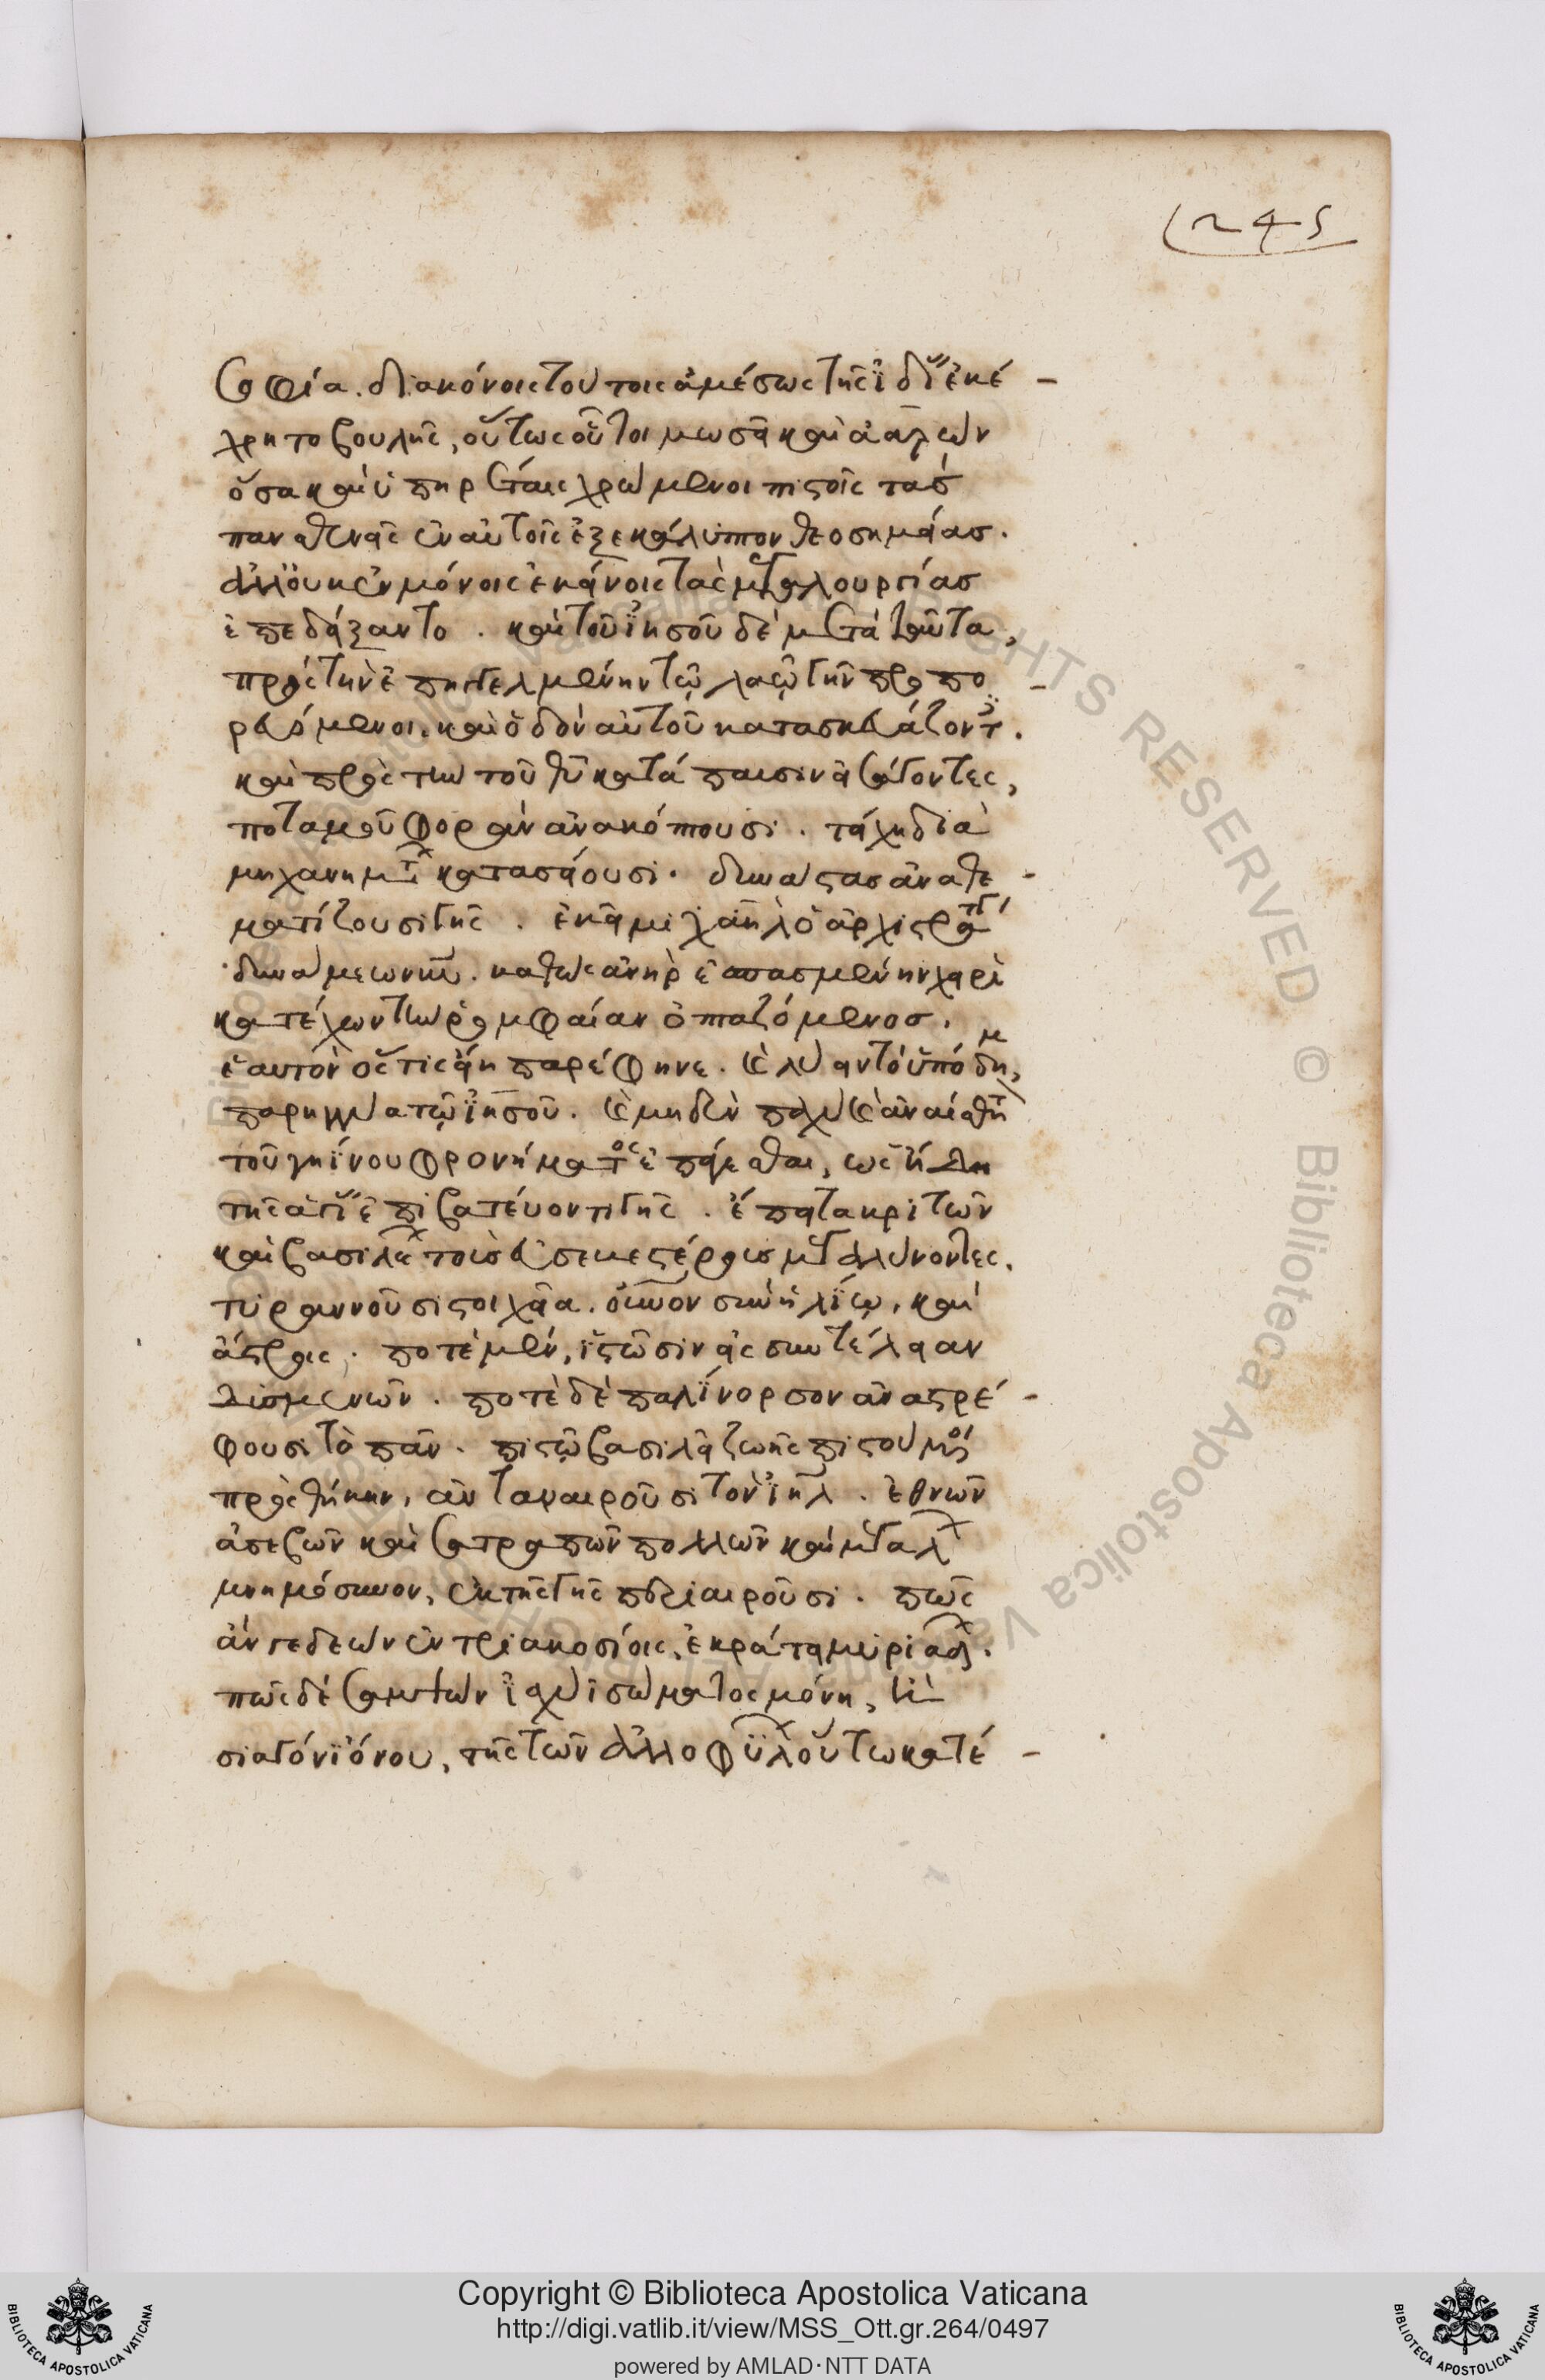 245
σοφία. διακόνοις τούτοις ἀμέσως τῆς ἰδί ἐκέ -
χρητο βουλῆς, οὕτως οὗτοι μωσῆ καὶ ἀαρὼν
ὅσα καὶ ὑπηρέταις χρώμενοι πιστοῖς τὰς
παναλκεῖς ἐν αὐτοῖς ἐξεκάλυπτον θεοσημείας.
ἀλλ' οὐκ ἐν μόνοις ἐκείνοις τὰς μεγαλουργίας
ἐπεδείξαντο. καὶ τοῦ ἰησοῦ δὲ μετὰ ταῦτα,
πρὸς τὴν ἐπηγγελμένην τῷ λαῷ γῆν προπο -
ρευόμενοι. καὶ ὁδὸν αὐτοῦ κατασκευάζοντ.
καὶ πρὸς τὴν τοῦ θῦ κατάπαυσιν εἰσάγοντες,
ποταμοῦ φορὰν ἀνακόπτουσι. τείχη δίχα
μηχανημτ κατασείουσι. δυνάστας ἀναθε -
ματίζουσι γῆς. ἐκεῖ μιχαὴλ ὁ ἀρχιστρατγ
δυνάμεων κυ. καθὼς ἀνὴρ ἐσπασμένην χειρὶ
κατέχων τὴν ῥομφαίαν ὀπταζόμενος.
ἑαυτὸν ὅστις εἴη παρέφηνε. καὶ λῦσαι τὸ ὑπόδημ,
παρηγγύα τῷ ἰησοῦ. καὶ μηδὲν παχὺ καὶ ἀναίσθητ
τοῦ γηΐνου φρονήματος ἐπάγεσθαι, ὡς ἤδη
τῆς ἁγί ἐπιβατεύοντι γῆς. ἔπειτα κριτῶν
καὶ βασιλε τοὺς εὐσεβεστέρους μεγαλύνοντες.
τυραννοῦσι στοιχεῖα. οὐνον σὺν ἡλίῳ, καὶ
ἄστροις. ποτὲ μὲν, ἱστῶσιν εἰς συντέλειαν
δυσμενῶν. ποτὲ δὲ παλίνορσον ἀναστρέ -
φουσι τὸ πᾶν. πιστῷ βασιλεῖ ζωῆς πιστουμος
προσθήκην, ἀνταναιροῦσι τὸν ἰηλ. ἐθνῶν
ἀσεβῶν καὶ σατραπῶν πολλῶν καὶ μεγαλ
μνημόσυνον, ἐκ τῆς γῆς περιαιροῦσι. πῶς
ἂν γεδεὼν ἐν τριακοσίοις, ἐκράτει μυριάδ.
πῶς δὲ σαμψὼν ἰσχύϊ σώματος μόνῃ, καὶ
σιαγόνι ὄνου, τῆς τῶν ἀλλοφύλ οὕτω κατέ -
Copyright © Biblioteca Apostolica Vaticana
http://digi.vatlib.it/view/MSS_Ott.gr.264/0497
powered by AMLAD·NTT DATA
BIBLIOTECA APOSTOLICA VATICANA
BIBLIOTECA APOSTOLICA VATICANA